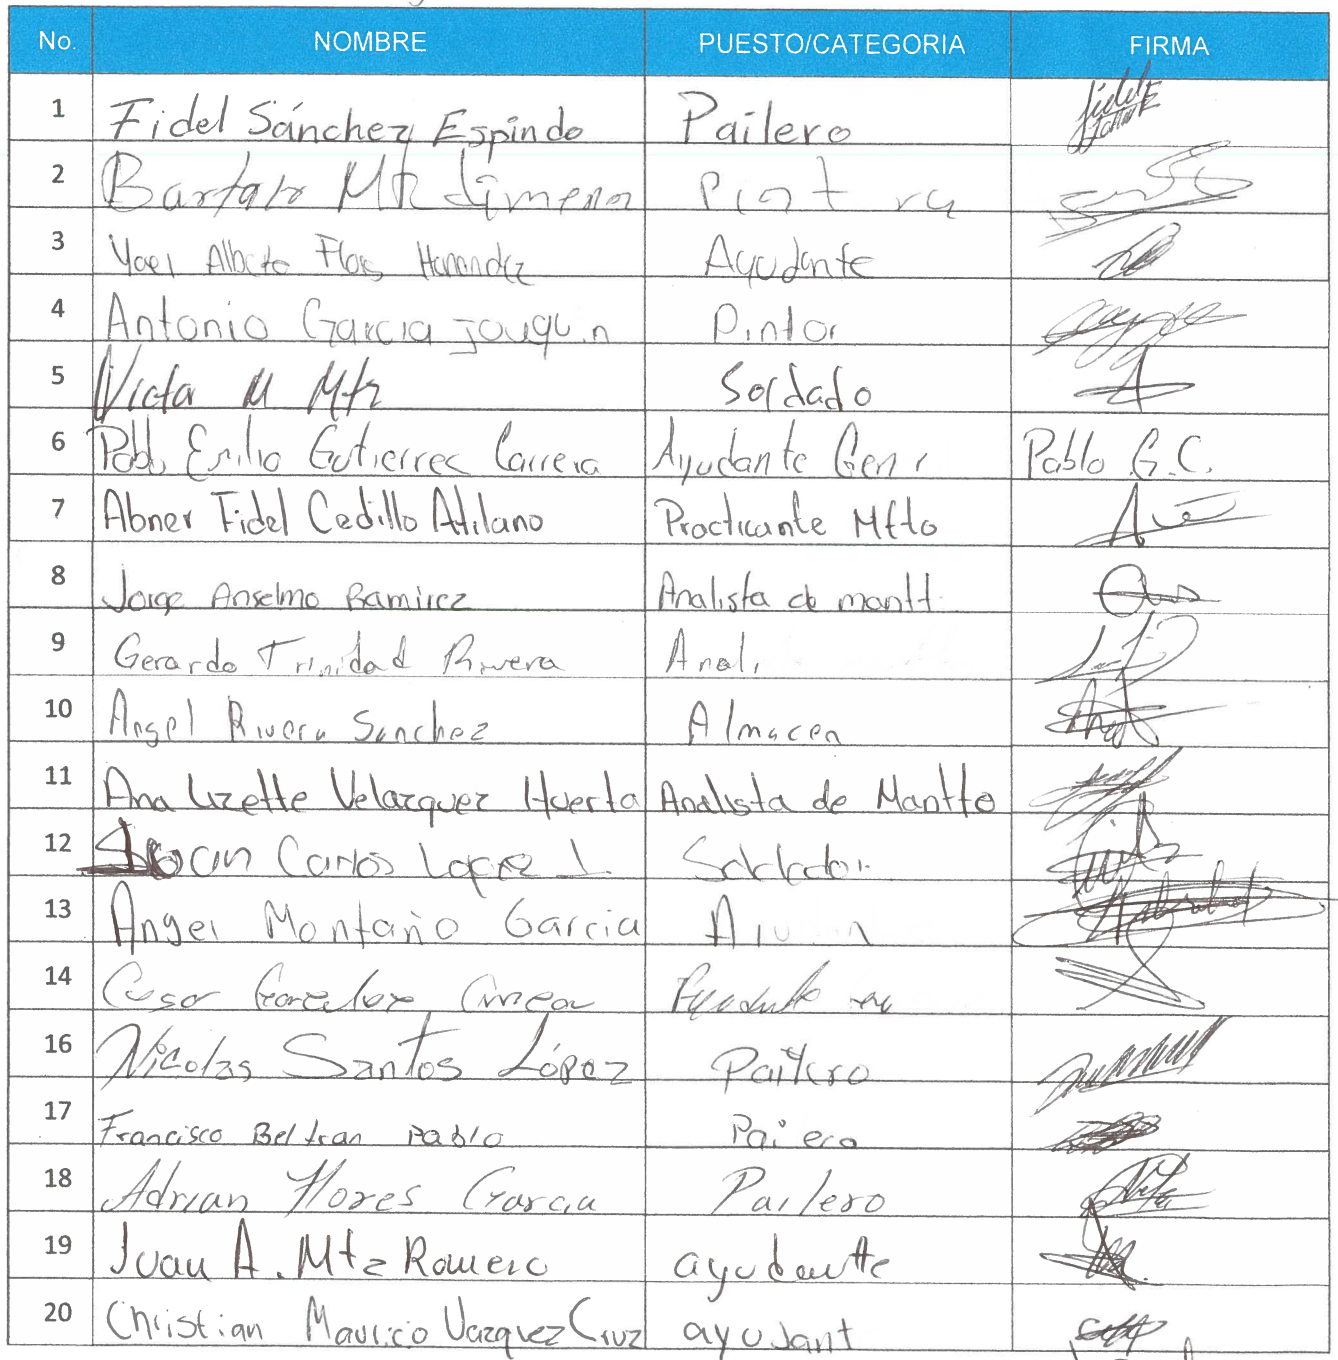 No. NOMBRE PUESTO/CATEGORIA FIRMA
1 Fidel Sánchez Espindo Pailero
2 Bartolo Mtz Jimenez
3 Yael Alberto Flores Hernandez Ayudante
4 Antonio Garcia Joaquin Pintor
5 Victor M Mtz Soldado
6 Pablo Emilio Gutierrez Carrera Ayudante Genr Pablo G.C.
7 Abner Fidel Cedillo Atilano Practicante Mtto
8 Jorge Anselmo Ramirez Analista de mantt.
9 Gerardo Trinidad Rivera Anali
10 Angel Rivera Sanchez Almacen
11 Ana Lizette Velazquez Huerta Analista de Mantto
12 Juan Carlos Lopez J. Soldador
13 Angel Montaño Garcia
14 Cesar Gonzalez
16 Nicolas Santos López Pailero
17 Francisco Beltran Pablo Pailero
18 Adrian Flores Garcia Pailero
19 Juan A. Mtz Romero ayudante
20 Christian Mauricio Vazquez Cruz ayudant